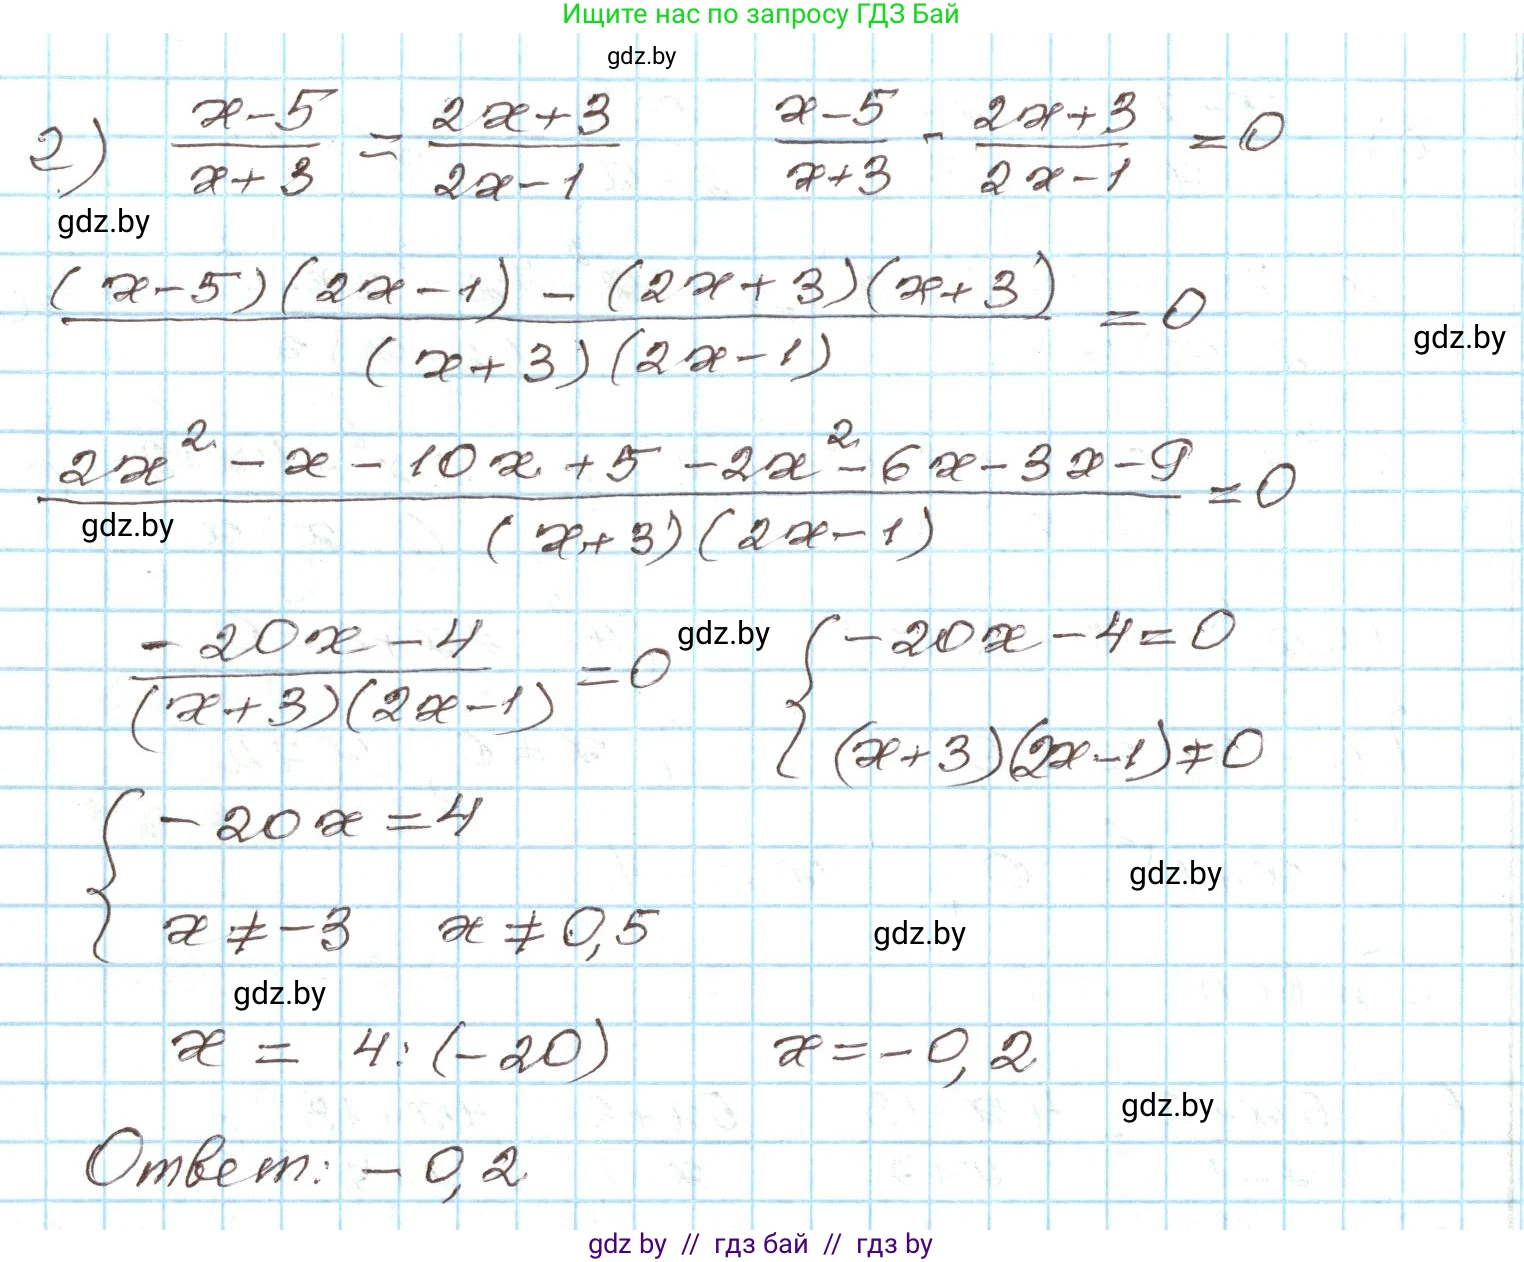 Ищите нас по запросу ГДЗ Бай
gdz.by
г) (x-5)/(x+3) = (2x+3)/(2x-1)   (x-5)/(x+3) - (2x+3)/(2x-1) = 0
gdz.by
((x-5)(2x-1) - (2x+3)(x+3))/((x+3)(2x-1)) = 0
gdz.by
(2x² - x - 10x + 5 - 2x² - 6x - 3x - 9)/((x+3)(2x-1)) = 0
gdz.by
(-20x - 4)/((x+3)(2x-1)) = 0 gdz.by { -20x - 4 = 0
(x+3)(2x-1) ≠ 0
{ -20x = 4
gdz.by
x ≠ -3   x ≠ 0,5
gdz.by
gdz.by
x = 4:(-20)   x = -0,2
gdz.by
Ответ: -0,2
gdz by // гдз бай // гдз by